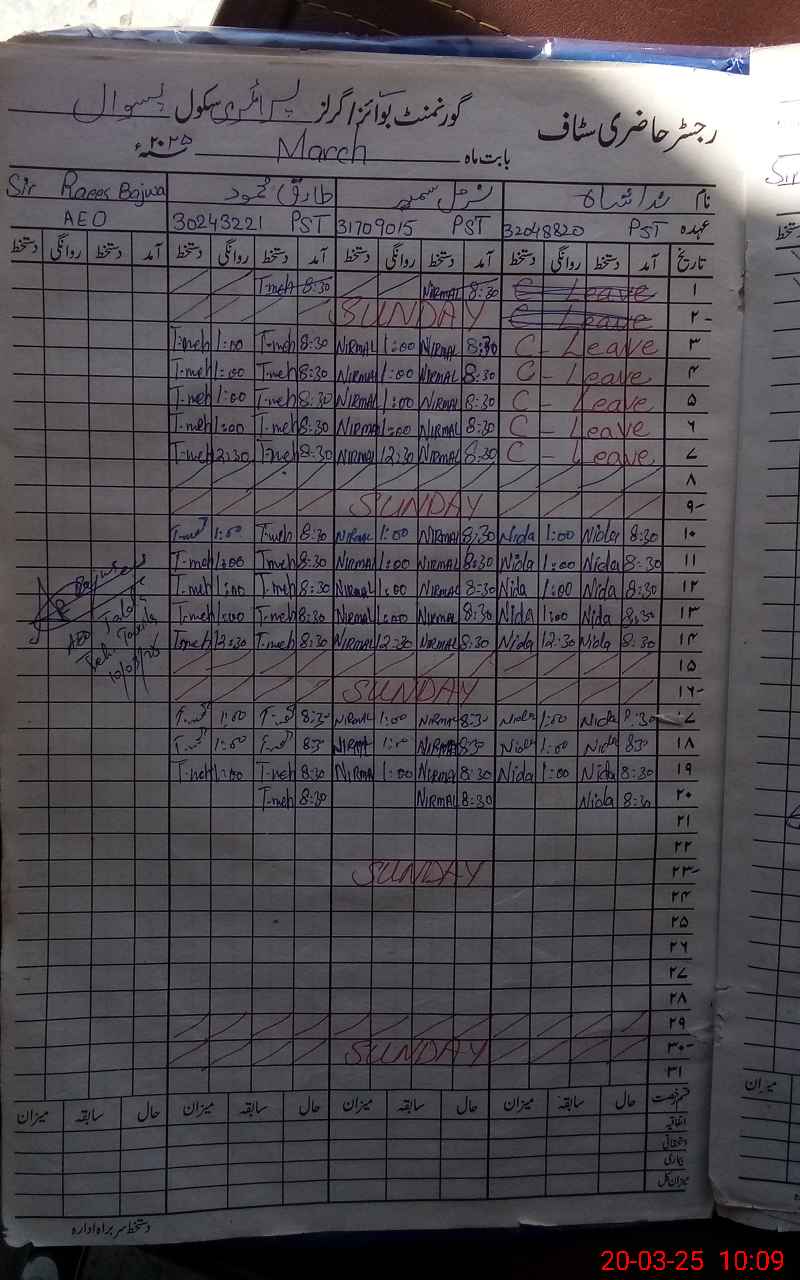 رجسٹر حاضری سٹاف گورنمنٹ بوائز/گرلز پرائمری سکول پسوال
بابت ماہ March سنہ ۲۰۲۵ء
نام ندا شاہ نرمل سمیر طارق محمود Sir Raees Bajwa
عہدہ 32048820 PST 31709015 PST 30243221 PST AEO
تاریخ آمد دستخط روانگی دستخط آمد دستخط روانگی دستخط آمد دستخط روانگی دستخط آمد دستخط روانگی دستخط
۱ C - Leave 8:30 NIRMAL 8:30 T-meh
۲ C - Leave SUNDAY
۳ C - Leave 8:30 NIRMAL 1:00 NIRMAL 8:30 T-meh 1:00 T-meh
۴ C - Leave 8:30 NIRMAL 1:00 NIRMAL 8:30 T-meh 1:00 T-meh
۵ C - Leave 8:30 NIRMAL 1:00 NIRMAL 8:30 T-meh 1:00 T-meh
۶ C - Leave 8:30 NIRMAL 1:00 NIRMAL 8:30 T-meh 1:00 T-meh
۷ C - Leave 8:30 NIRMAL 12:30 NIRMAL 8:30 T-meh 12:30 T-meh
۸
۹ SUNDAY
۱۰ 8:30 Nida 1:00 Nida 8:30 NIRMAL 1:00 NIRMAL 8:30 T-meh 1:00
۱۱ 8:30 Nida 1:00 Nida 8:30 NIRMAL 1:00 NIRMAL 8:30 T-meh 1:00 T-meh
۱۲ 8:30 Nida 1:00 Nida 8:30 NIRMAL 1:00 NIRMAL 8:30 T-meh 1:00 T-meh
۱۳ 8:30 Nida 1:00 Nida 8:30 NIRMAL 1:00 NIRMAL 8:30 T-meh 1:00 T-meh
۱۴ 8:30 Nida 12:30 Nida 8:30 NIRMAL 12:30 NIRMAL 8:30 T-meh 12:30 T-meh
AEO
10/03/25
۱۵
۱۶ SUNDAY
۱۷ 8:30 Nida 1:00 Nida 8:30 NIRMAL 1:00 NIRMAL 8:30 1:00
۱۸ 8:30 Nida 1:00 Nida 8:30 NIRMAL 1:00 NIRMAL 8:30 1:00
۱۹ 8:30 Nida 1:00 Nida 8:30 NIRMAL 1:00 NIRMAL 8:30 T-meh 1:00 T-meh
۲۰ 8:30 Nida 8:30 NIRMAL 8:30 T-meh
۲۱
۲۲
۲۳ SUNDAY
۲۴
۲۵
۲۶
۲۷
۲۸
۲۹
۳۰ SUNDAY
۳۱
قسم رخصت حال سابقہ میزان حال سابقہ میزان حال سابقہ میزان حال سابقہ میزان
اتفاقیہ
بیماری
میزان کل
دستخط سربراہ ادارہ
20-03-25 10:09